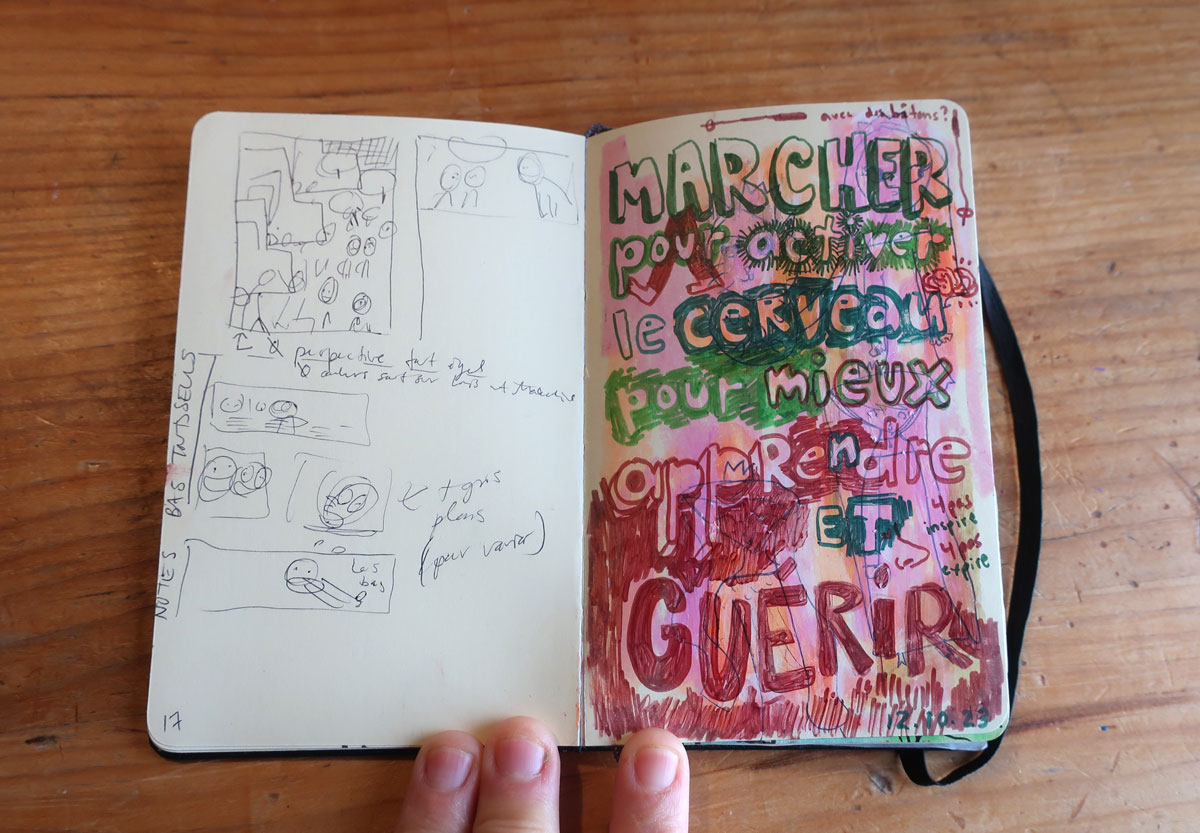 perspective
BAS TNDSSEUS
← + gros
plans
(pour varier)
Les
bas
NOTES
17
avec des bâtons?
MARCHER
pour activer
le CERVEAU
pour mieux
appRendre
ET
4 pas
inspire
4 pas
expire
GUÉRIR
12.10.23